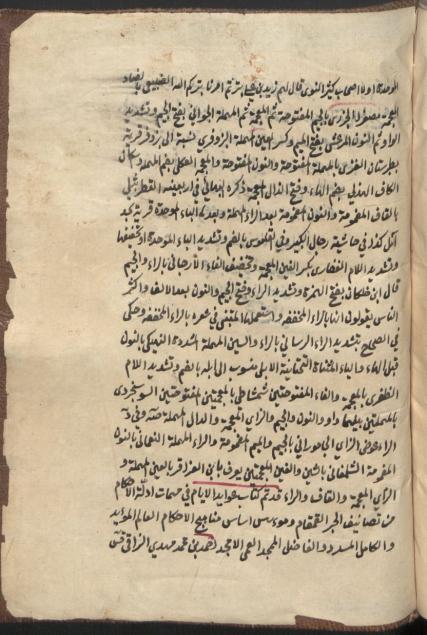 الموحدة اولا اصحاب كثير النوى قال لهم زيد بن علي اتبرؤن تم امرنا بتركم الله الضبيعي بالضاد
المعجمة مصغرا الجزري بالجيم المفتوحة ثم المعجمة ثم المهملة الجواني بفتح الجيم وتشديد
الواو ثم النون المرعشي بفتح الميم وكسر العين المهملة الزوفري نسبة الى زوفر قرية
بطبرستان العنزي بالمهملة المفتوحة والنون المفتوحة والمعجمة العكلي بضم المهملة واسكان
الكاف الهذلي بضم الهاء وفتح الذال المعجمة ذكره البهائي في اربعينه القطربلي
بالقاف المضمومة والنون المضمومة بعد الراء المهملة وبعدها الباء الموحدة قرية
كذا في حاشية رجال الكبير وفي القاموس بالضم وتشديد الباء الموحدة او بتخفيفها
وتشديد اللام الغفاري بكسر الغين المعجمة وتخفيف الفاء الارجاني بالراء والجيم
قال ابن خلكان بفتح الهمزة وتشديد الراء وفتح الجيم والنون بعد الالف واكثر
الناس يقولون انها بالراء المخففة واستعملها المتنبي في شعره بالراء المخففة وحكى
في الصحاح بتشديد الراء الرساني بالراء والسين المهملة المشددة النهيكي بالنون
قبل الهاء والياء المثناة التحتانية الابلي منسوب الى ابله بالضم وتشديد اللام
الظفري بالمعجمة والفاء المفتوحتين شمشاطي بالمعجمتين المفتوحتين السوسنجردي
بالمهملتين بينهما واو والنون والجيم والزاي المعجمة والدال المهملة
الراء عوض الزاي الحاموراني بالجيم والميم المضمومة والراء المهملة النعماني بالنون
المضمومة الشلمغاني بالشين والغين المعجمتين يعرف بابن العزاقر بالعين المهملة و
الزاي المعجمة والقاف والراء قد تم كتاب عوايد الايام في مهمات ادلة الاحكام
من تصانيف الحبر القمقام وموسس اساس مناهج الاحكام العالم المؤيد
والكامل المسدد والفاضل الممجد العمي الامجد احمد بن محمد مهدي النراقي